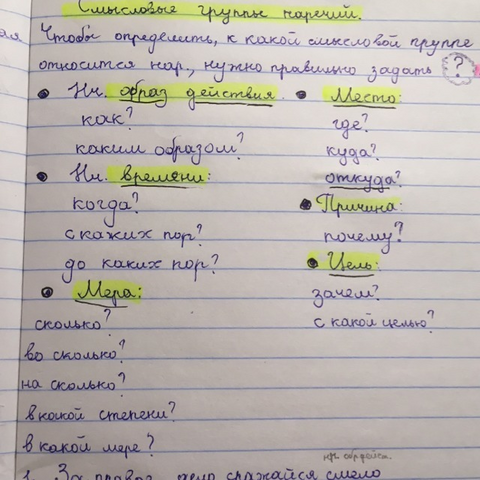 Смысловые группы наречий.
ая Чтобы определить, к какой смысловой группе
относится нар., нужно правильно задать ?
• Нч. образ действия.
как?
каким образом?
• Нч. времени:
когда?
с каких пор?
до каких пор?
• Мера:
сколько?
во сколько?
на сколько?
в какой степени?
в какой мере?
• Место:
где?
куда?
откуда?
• Причина:
почему?
• Цель:
зачем?
с какой целью?
1. За правое дело сражайся смело